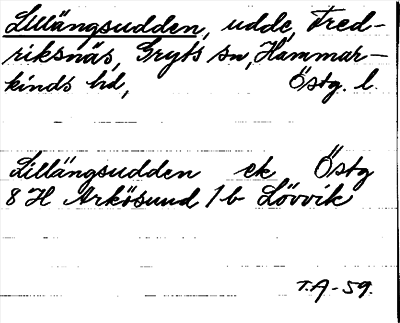 Lillängsudden, udde, Fred-
riksnäs, Gryts sn, Hammar-
kinds hd, Östg. l.
Lillängsudden ek Östg
8 H Arkösund 1 b Lövvik
T.A-59.